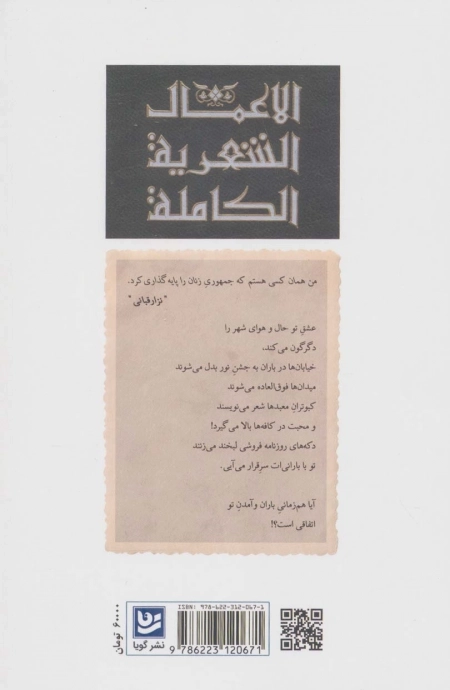 الاعمال
الشعرية
الكاملة
من همان کسی هستم که جمهوریِ زنان را پایه گذاری کرد.
"نزارقبانی"
عشقِ تو حال و هوای شهر را
دگرگون می‌کند.
خیابان‌ها در باران به جشنِ نور بدل می‌شوند
میدان‌ها فوق‌العاده می‌شوند
کبوترانِ معبدها شعر می‌نویسند
و محبت در کافه‌ها بالا می‌گیرد!
دکه‌های روزنامه فروشی لبخند می‌زنند
تو با بارانی‌ات سرِقرار می‌آیی.
آیا هم‌زمانیِ باران وآمدنِ تو
اتفاقی است؟!
ISBN: 978-622-312-067-1
9 786223 120671
نشر گویا
۶۰۰۰۰ تومان